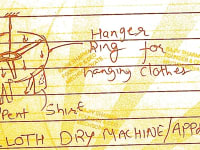 Hanger
Ring for
hanging clothes
Pent Shirt
CLOTH DRY MACHINE/APPA